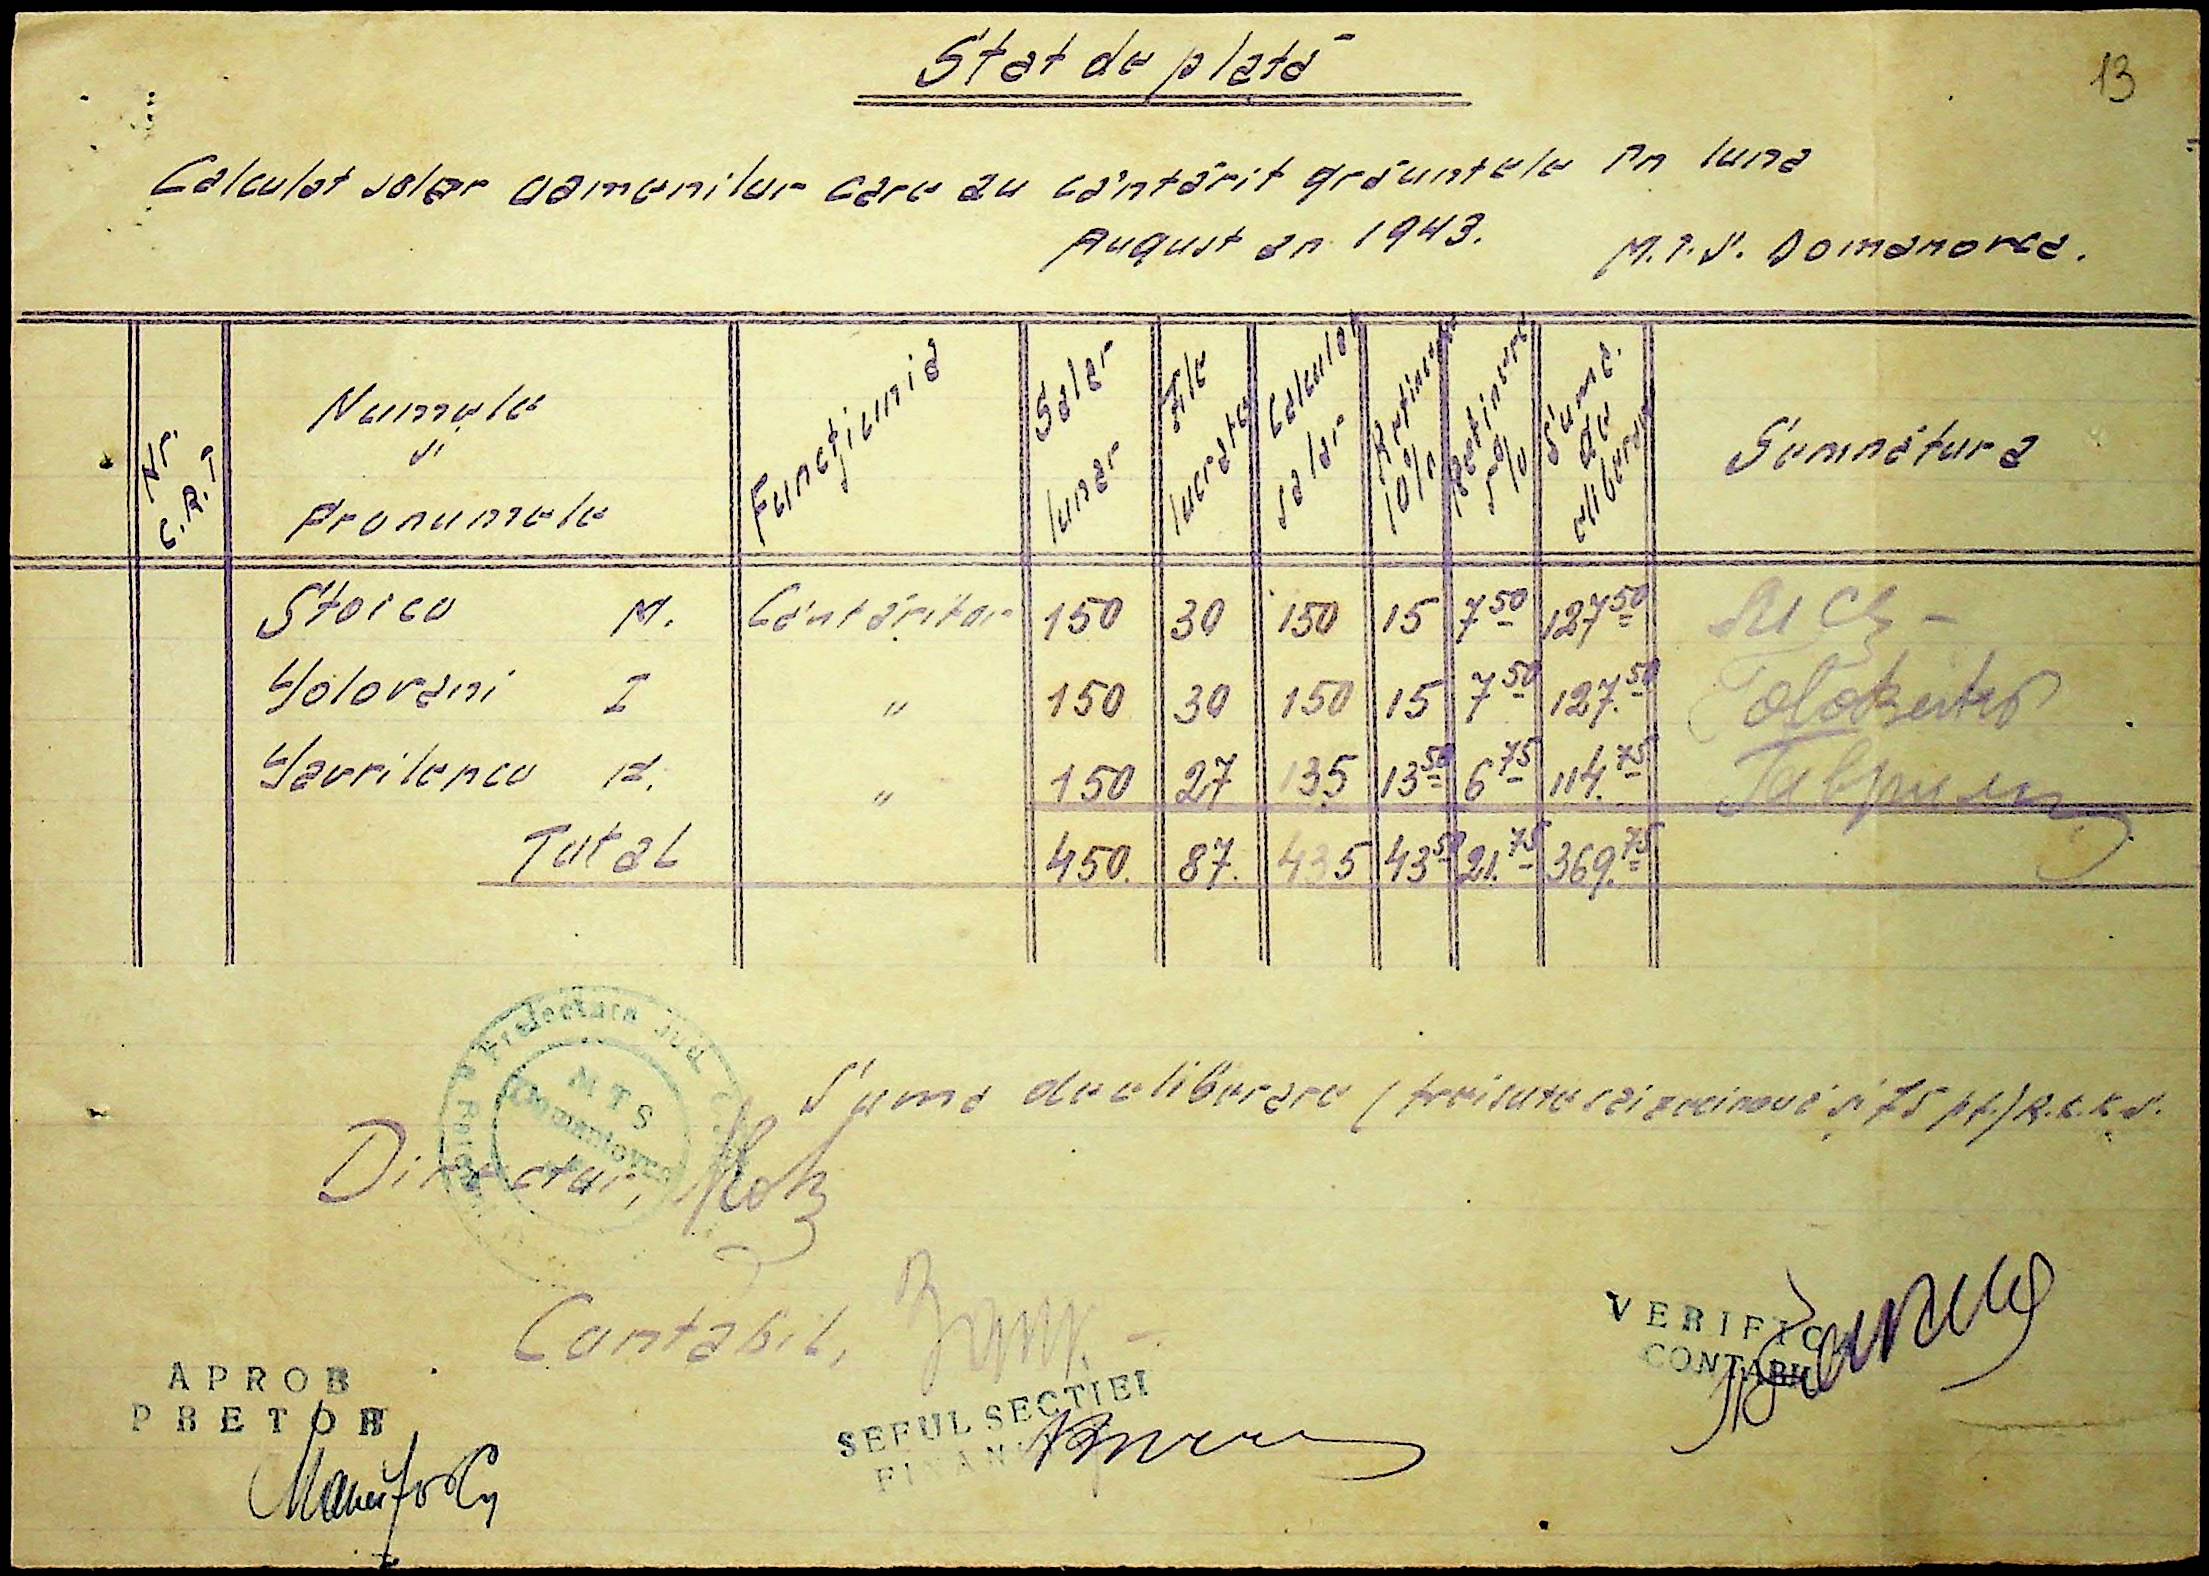 Stat de plată
13
Calculat salar oamenilor care au cântărit grăuntele în luna
August an 1943. M.T.S. Domanovca.
Nr. C.R.T Numele și Pronumele Funcțiunia Salar lunar Zile lucrate Calculat salar Retinere 10% Retinere 5% Suma de eliberare Semnătura
Stoico M. Cântăritor 150 30 150 15 7 50 127 50
Golovani I " 150 30 150 15 7 50 127. 50
Gavrilenco " 150 27 135 13 50 6 75 114. 75 Гаврилен
Total 450. 87. 435 43 50 21. 75 369. 75
Prefectura Jud.
MTS
Suma de eliberare (treisute saizecinouă și 75 pf.) R.K.K.S.
Director,
Contabil,
VERIFIC
CONTABIL
APROB
PRETOR
SEFUL SECTIEI
FINAN